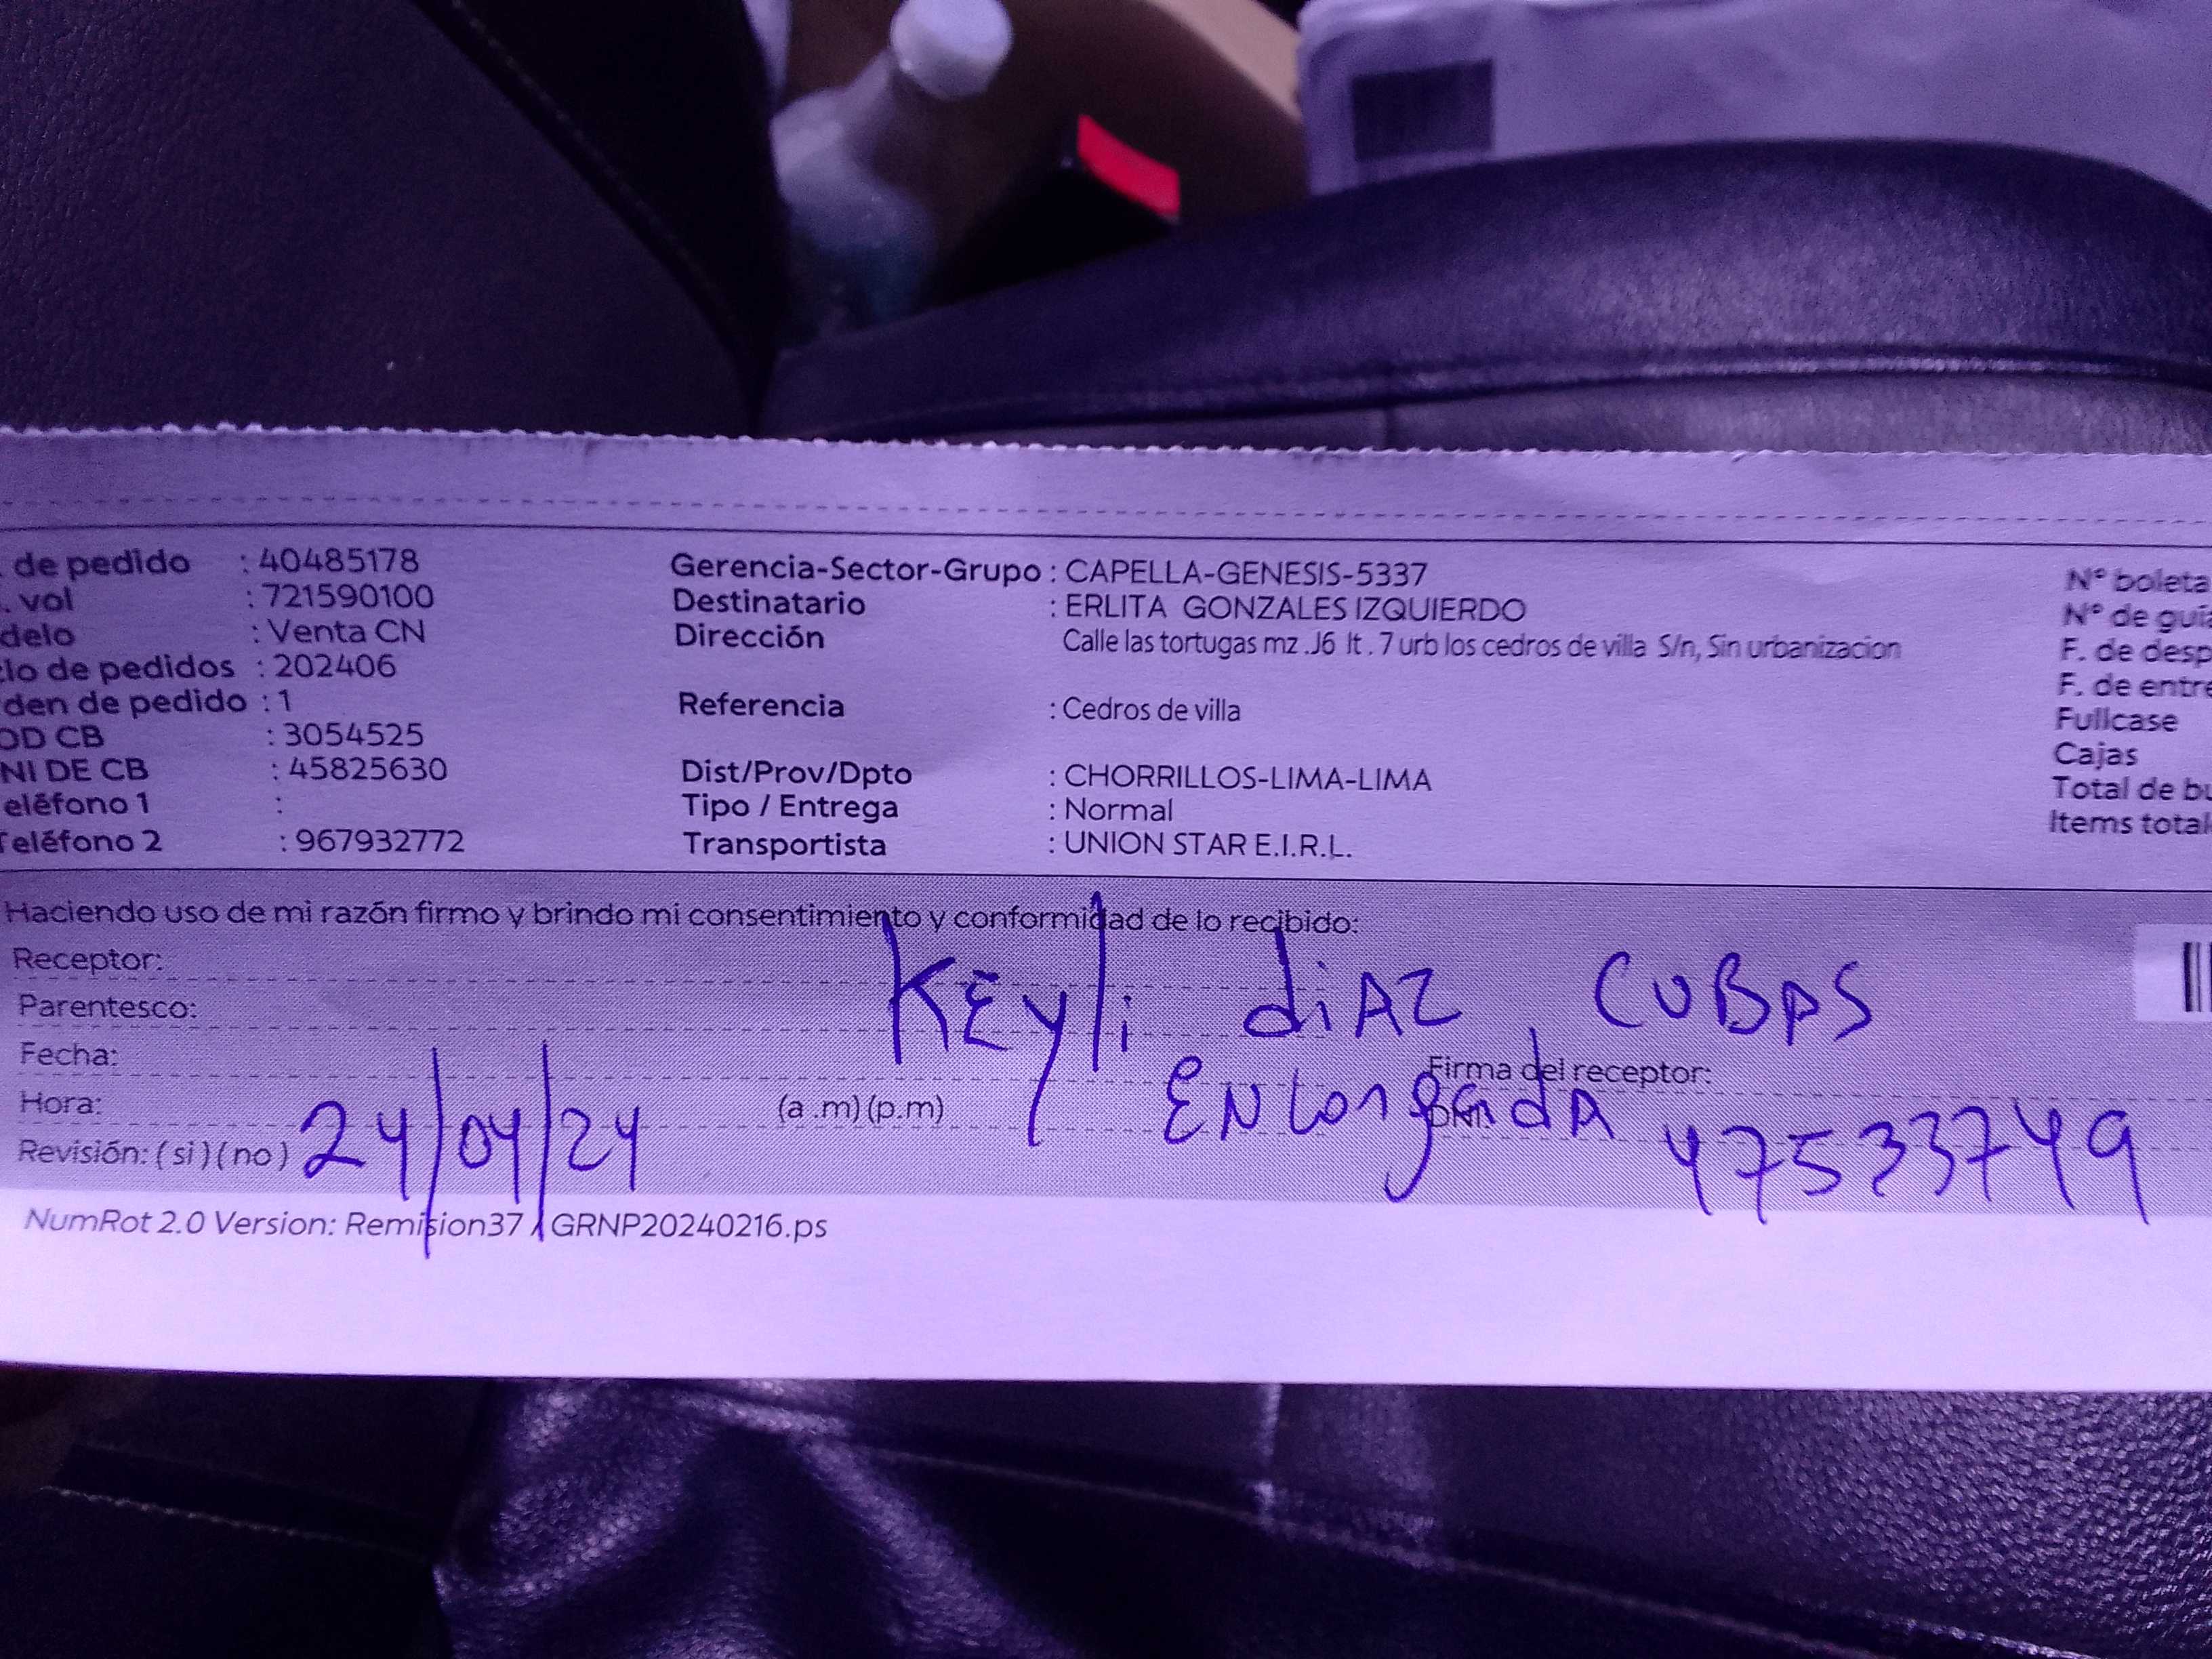 . de pedido : 40485178
. vol : 721590100
delo : Venta CN
clo de pedidos : 202406
den de pedido : 1
OD CB : 3054525
NI DE CB : 45825630
eléfono 1 :
Teléfono 2 : 967932772
Gerencia-Sector-Grupo : CAPELLA-GENESIS-5337
Destinatario : ERLITA GONZALES IZQUIERDO
Dirección Calle las tortugas mz .J6 lt . 7 urb los cedros de villa S/n, Sin urbanizacion
Referencia : Cedros de villa
Dist/Prov/Dpto : CHORRILLOS-LIMA-LIMA
Tipo / Entrega : Normal
Transportista : UNION STAR E.I.R.L.
Nº boleta
Nº de guía
F. de desp
F. de entre
Fullcase
Cajas
Total de bu
Items total
Haciendo uso de mi razón firmo y brindo mi consentimiento y conformidad de lo recibido:
Receptor:
Parentesco:
KEyli diAZ CUBAS
Fecha:
Firma del receptor:
Hora: (a .m) (p.m)
Revisión: ( si ) ( no ) 24/04/24
47533749
NumRot 2.0 Version: Remision37 / GRNP20240216.ps